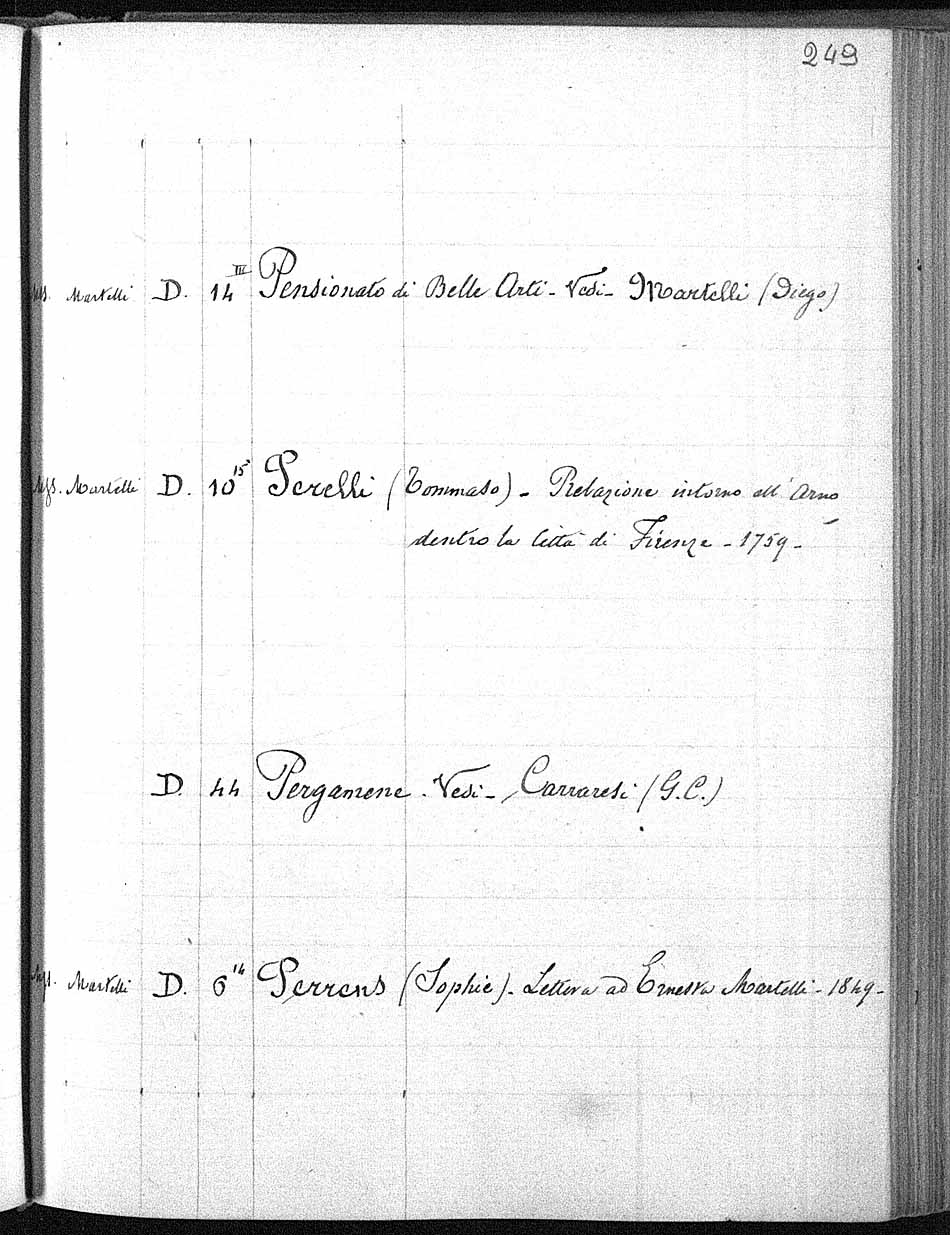 249
Mss. Martelli D. 14 III Pensionato di Belle Arti - Vedi - Martelli (Diego)
Mss. Martelli D. 10 15 Perelli (Tommaso) - Relazione intorno all' Arno
dentro la Città di Firenze - 1759 -
D. 44 Pergamene - Vedi - Carraresi (G.C.)
Mss. Martelli D. 6 14 Perrens (Sophie) - Lettera ad Ernesta Martelli - 1849 -